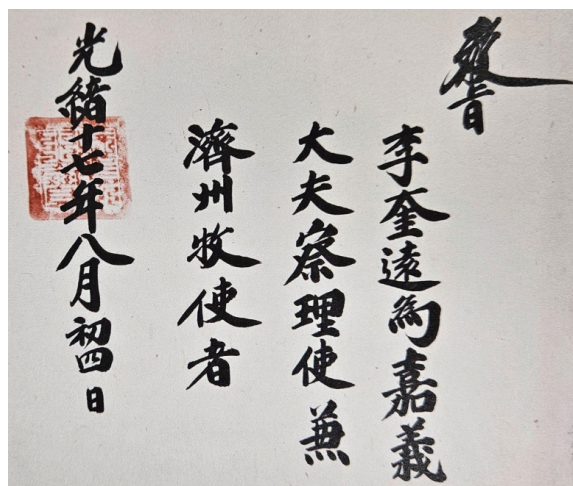 教旨
李奎遠為嘉義
大夫察理使兼
濟州牧使者
光緒十七年八月初四日